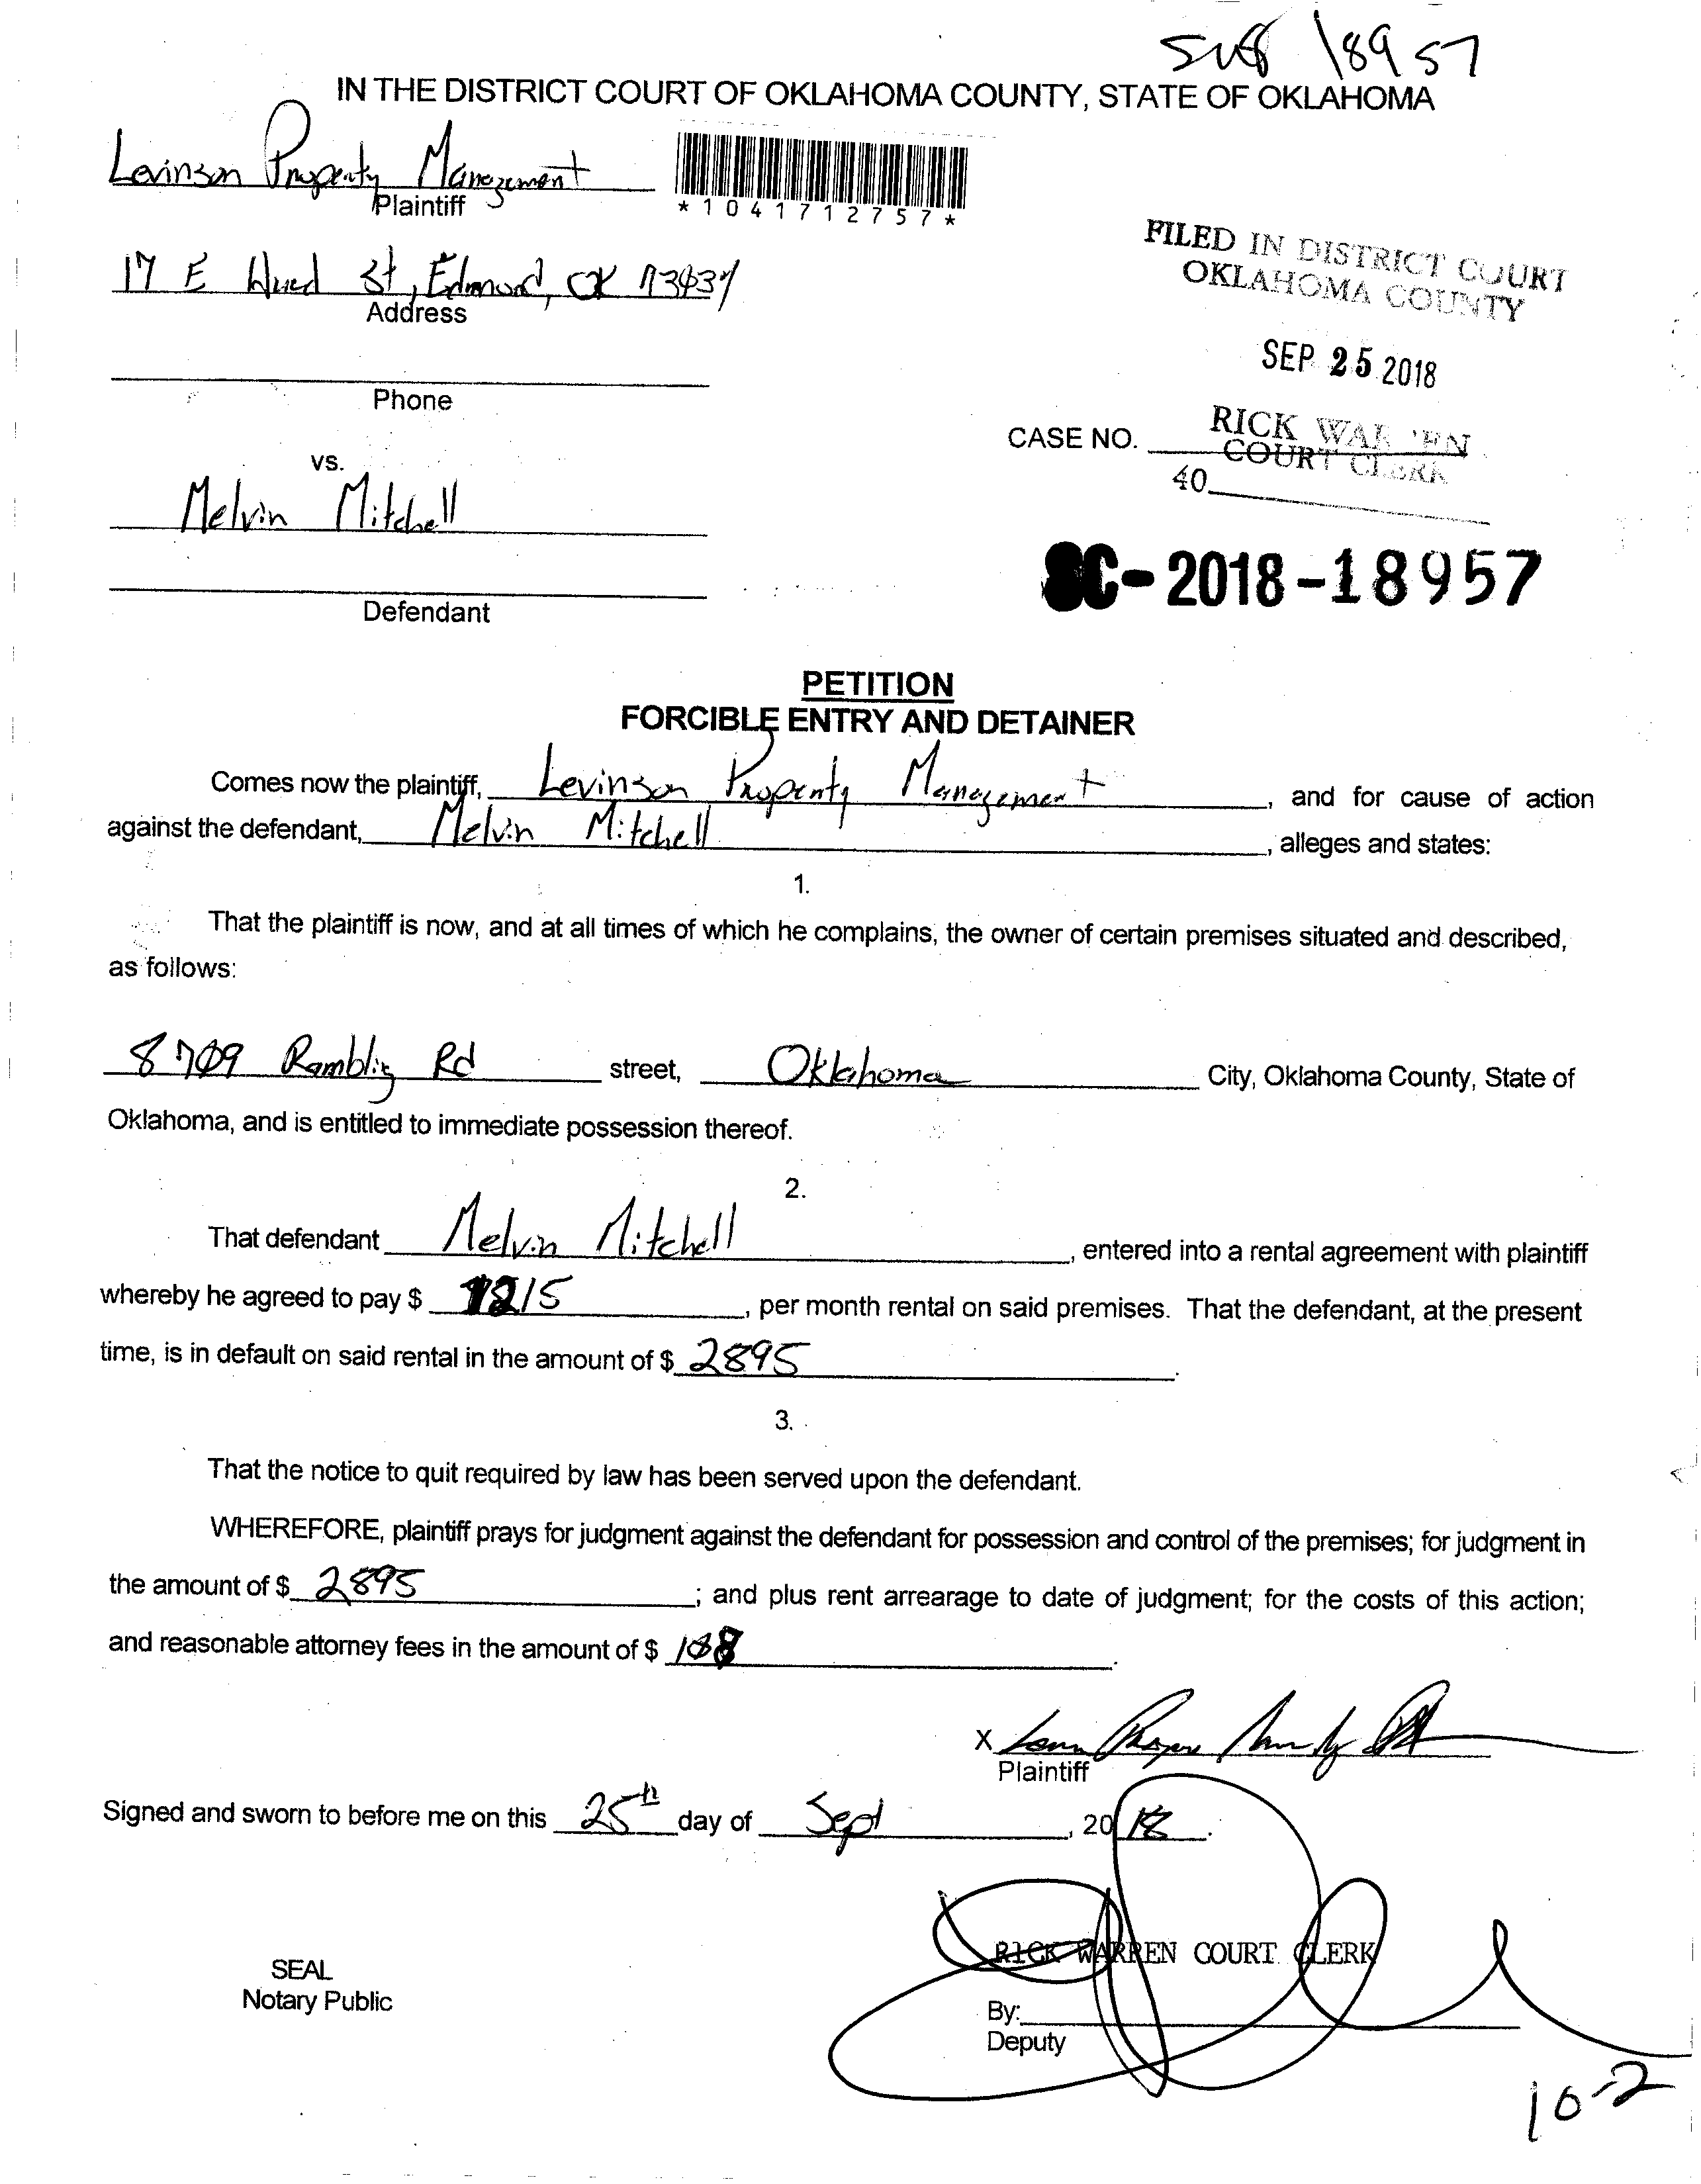 18957
IN THE DISTRICT COURT OF OKLAHOMA COUNTY, STATE OF OKLAHOMA
Levinson Property Management
Plaintiff
*1041712757*
FILED IN DISTRICT COURT
OKLAHOMA COUNTY
17 E St, Edmond, OK
Address
SEP 25 2018
Phone
RICK WARREN
CASE NO.
COURT CLERK
40
vs.
Melvin Mitchell
SC-2018-18957
Defendant
PETITION
FORCIBLE ENTRY AND DETAINER
Comes now the plaintiff, Levinson Property Management, and for cause of action
against the defendant, Melvin Mitchell, alleges and states:
1.
That the plaintiff is now, and at all times of which he complains, the owner of certain premises situated and described,
as follows:
8709 Rambling Rd street, Oklahoma City, Oklahoma County, State of
Oklahoma, and is entitled to immediate possession thereof.
2.
That defendant Melvin Mitchell, entered into a rental agreement with plaintiff
whereby he agreed to pay $ 1215, per month rental on said premises. That the defendant, at the present
time, is in default on said rental in the amount of $ 2895.
3.
That the notice to quit required by law has been served upon the defendant.
WHEREFORE, plaintiff prays for judgment against the defendant for possession and control of the premises; for judgment in
the amount of $ 2895; and plus rent arrearage to date of judgment; for the costs of this action;
and reasonable attorney fees in the amount of $
X
Plaintiff
Signed and sworn to before me on this 25th day of Sept, 2018.
RICK WARREN COURT CLERK
SEAL
Notary Public
By:
Deputy
10-2